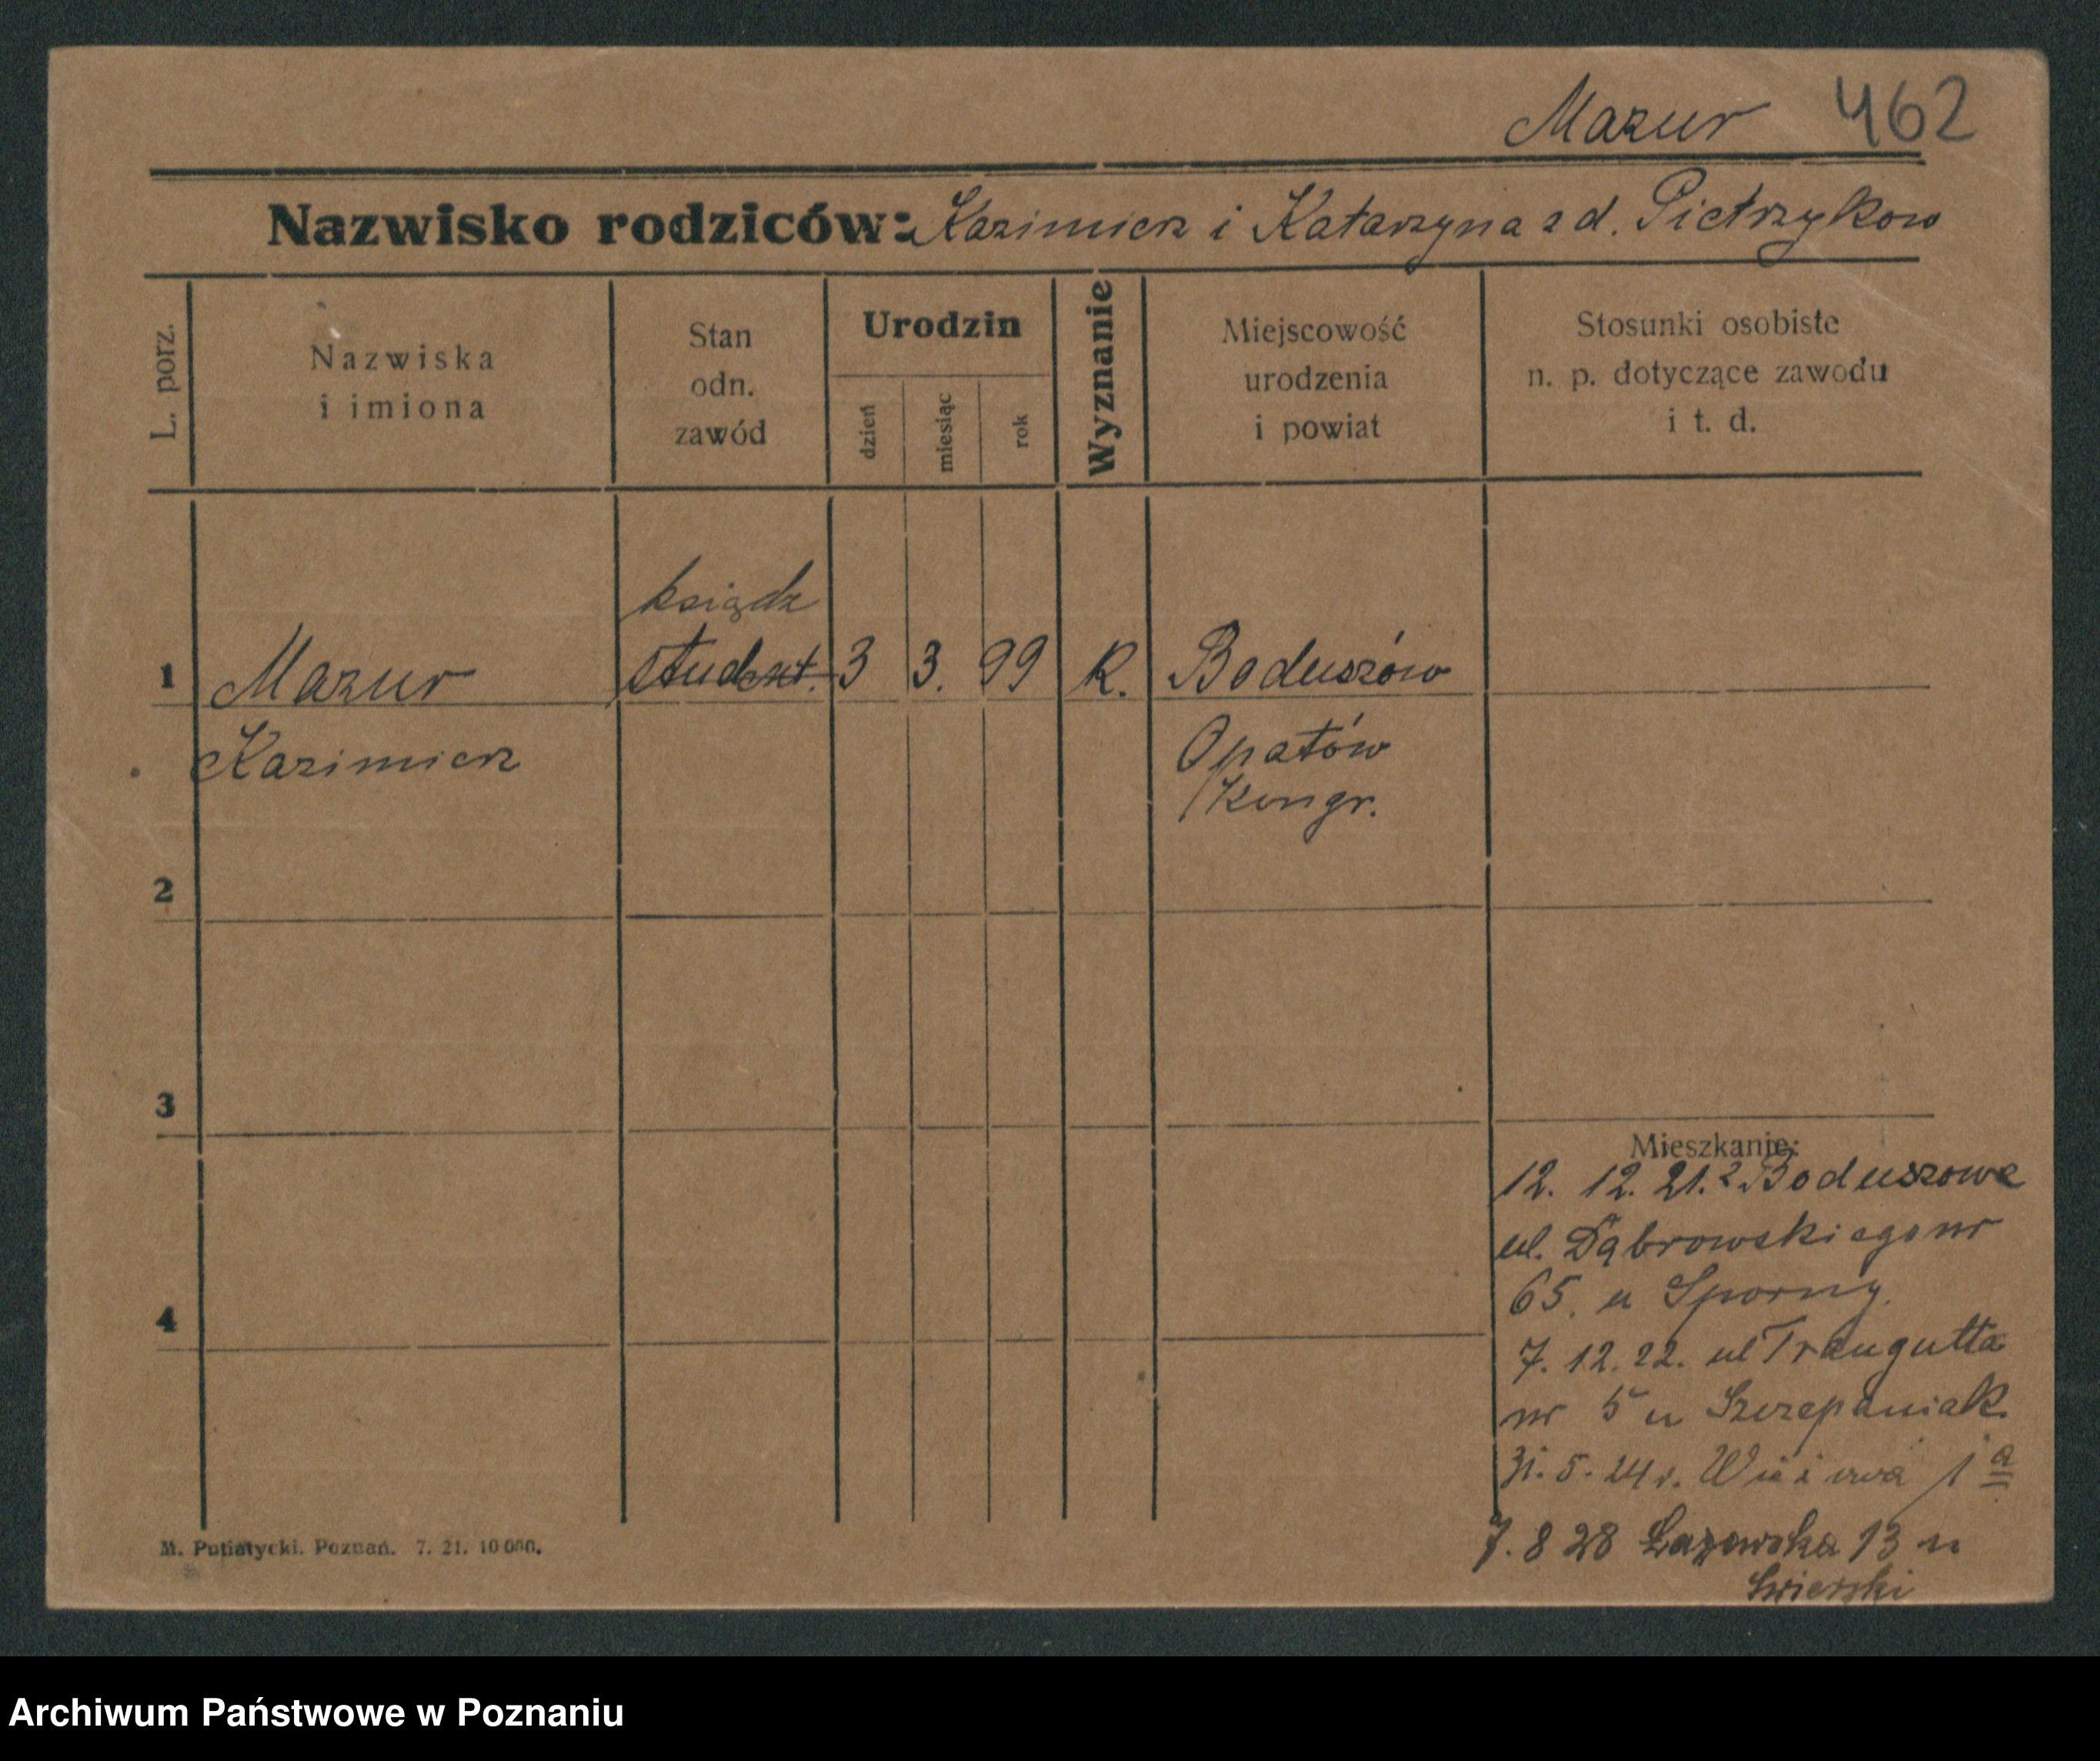 Mazur 462
Nazwisko rodziców: Kazimierz i Katarzyna z d. Pietrzyków
L. porz.
Nazwiska
i imiona
Stan
odn.
zawód
Urodzin
dzień
miesiąc
rok
Wyznanie
Miejscowość
urodzenia
i powiat
Stosunki osobiste
n. p. dotyczące zawodu
i t. d.
ksiądz
1 Mazur student. 3 3. 99 R. Boduszów
Kazimierz Opatów
Kongr.
2
3
4
Mieszkanie:
12. 12. 21. z Boduszowa
ul. Dąbrowskiego nr
65. u Sporny.
7. 12. 22. ul Traugutta
nr 5 u Szczepaniak
31. 5. 24 r. 1 a
7. 8 28 Łazowska 13 u
M. Putiatycki. Poznań. 7. 21. 10 000.
Archiwum Państwowe w Poznaniu